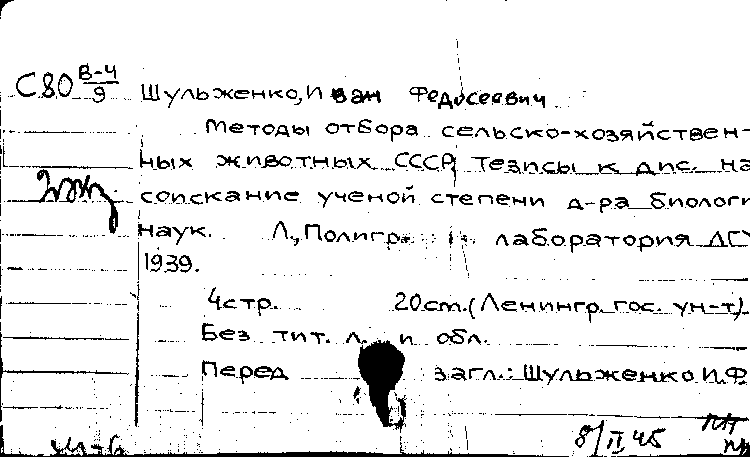 С80 В-4/9
Шульженко, Иван Федосеевич
Методы отбора сельско-хозяйствен-
ных животных СССР, тезисы к дис. на
соискание ученой степени д-ра биологи
наук. Л., Полигр. лаборатория ЛГУ
1939.
4 стр. 20 cm. (Ленингр. гос. ун-т).
Без тит. л. и обл.
Перед загл.: Шульженко И.Ф.
8/II 45